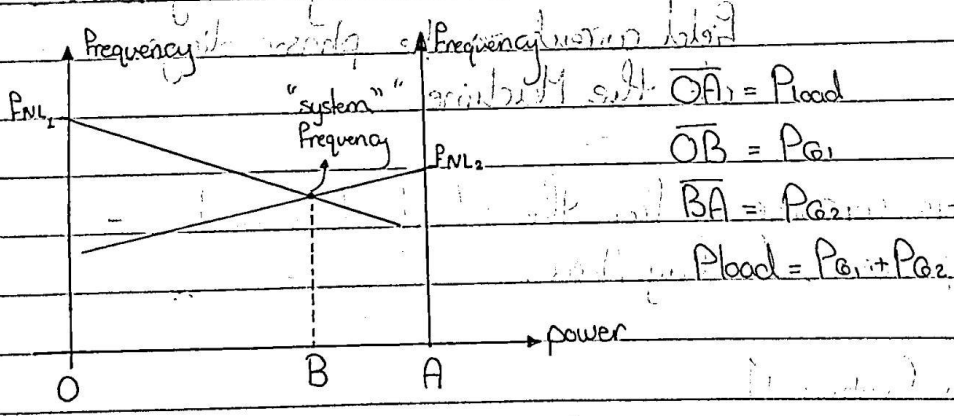 Frequency
Frequency
fNL₁
"system"
frequency
fNL₂
OA = Pload
OB = PG₁
BA = PG₂
Pload = PG₁ + PG₂
power
O
B
A